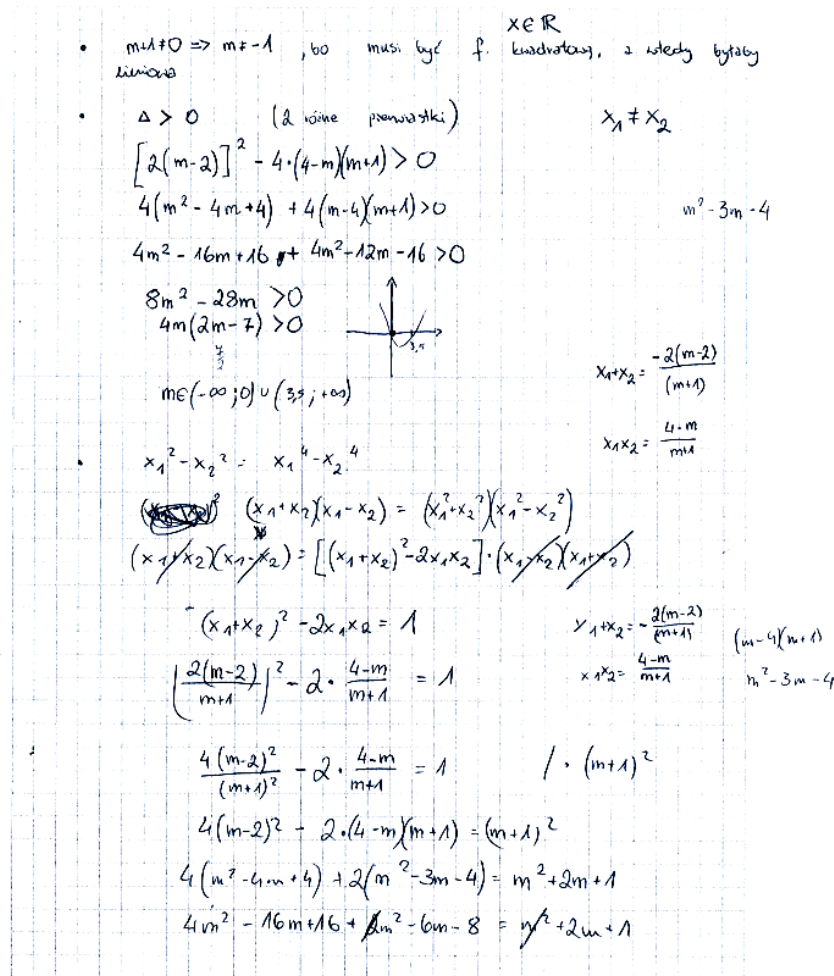 x∈ℝ
• m+1≠0 => m≠-1 , bo musi być f. kwadratowa, a wtedy byłaby
liniowa
• Δ > 0 (2 różne pierwiastki) x₁ ≠ x₂
[2(m-2)]² - 4·(4-m)(m+1) > 0
4(m² - 4m+4) + 4(m-4)(m+1)>0 m² - 3m - 4
4m² - 16m+16 + 4m² - 12m - 16 >0
8m² - 28m >0
4m(2m-7) >0
7/2
3,5
x₁+x₂ = -2(m-2)/(m+1)
m∈(-∞;0)∪(3,5;+∞)
x₁x₂ = 4-m/m+1
• x₁² - x₂² = x₁⁴ - x₂⁴
(x₁+x₂)(x₁-x₂) = (x₁²+x₂²)(x₁²-x₂²)
(x₁+x₂)(x₁-x₂) = [(x₁+x₂)² - 2x₁x₂]·(x₁-x₂)(x₁+x₂)
(x₁+x₂)² - 2x₁x₂ = 1 x₁+x₂ = -2(m-2)/(m+1) (m-4)(m+1)
(2(m-2)/m+1)² - 2·4-m/m+1 = 1 x₁x₂ = 4-m/m+1 m² - 3m - 4
4(m-2)²/(m+1)² - 2·4-m/m+1 = 1 /·(m+1)²
4(m-2)² - 2·(4-m)(m+1) = (m+1)²
4(m² - 4m+4) + 2(m² - 3m - 4) = m² + 2m + 1
4m² - 16m+16 + 2m² - 6m - 8 = m² + 2m + 1